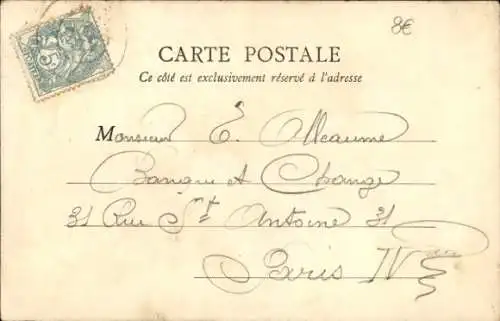 8€
5
CARTE POSTALE
Ce côté est exclusivement réservé à l'adresse
Monsieur E. Alleaume
Banque et Change
31 Rue St Antoine 31
Paris IV